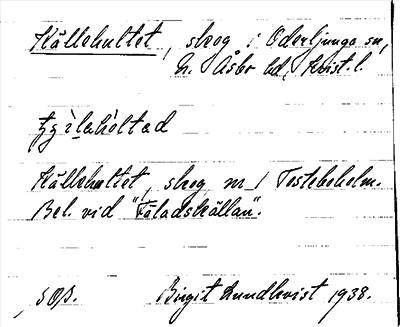 Källehultet, skog i Oderljunga sn,
N. Åsbo hd, Krist. l.
Källehultet, skog m / Tostebeholm.
Bel. vid "Fäladskällan".
SOB. Birgit Lundkvist 1938.